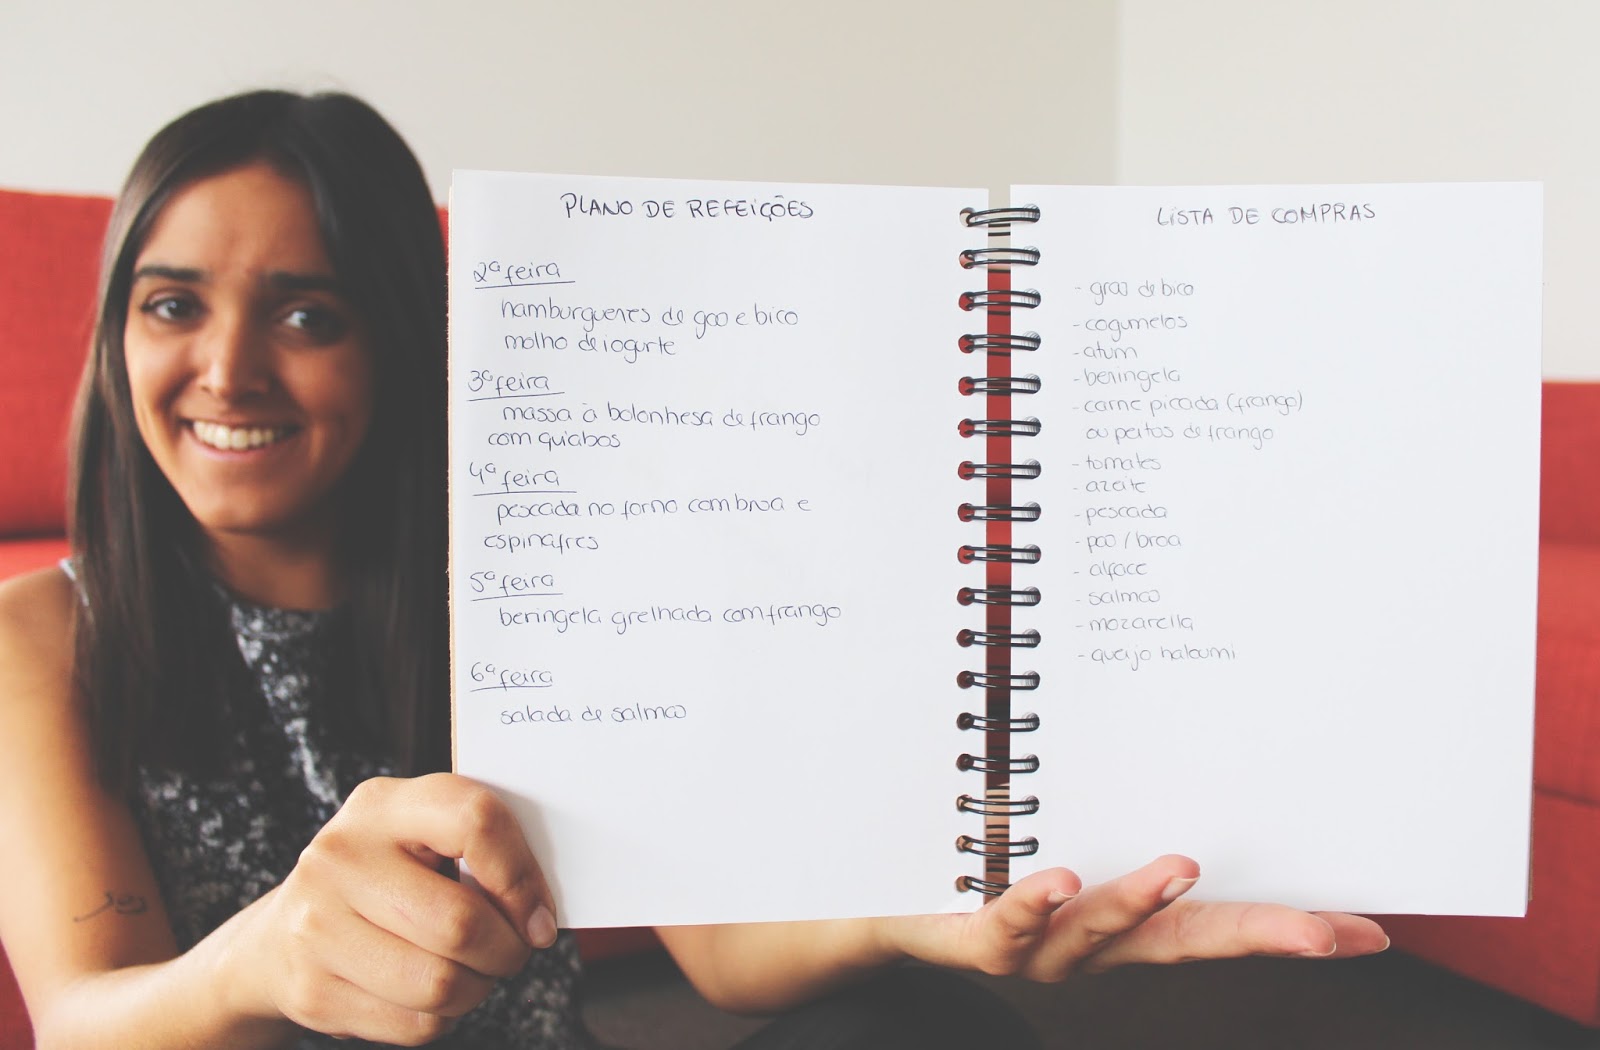 PLANO DE REFEIÇÕES
2ª feira
hamburgueres de gao e bico
molho de iogurte
3ª feira
massa à bolonhesa de frango
com quiabos
4ª feira
pescada no forno com broa e
espinafres
5ª feira
beringela grelhada com frango
6ª feira
salada de salmão
LISTA DE COMPRAS
- grão de bico
- cogumelos
- atum
- beringela
- carne picada (frango)
ou peitos de frango
- tomates
- azeite
- pescada
- pão / broa
- alface
- salmão
- mozarella
- queijo haloumi